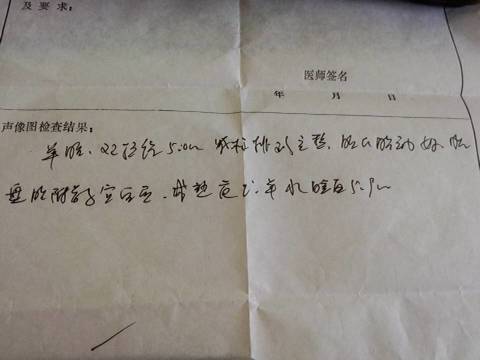 及要求：
医师签名
年 月 日
声像图检查结果：
单胎、双顶径5.0cm 脊柱排列完整，胎心胎动好，胎
盘附着宫后壁，成熟度 羊水暗区5.9cm